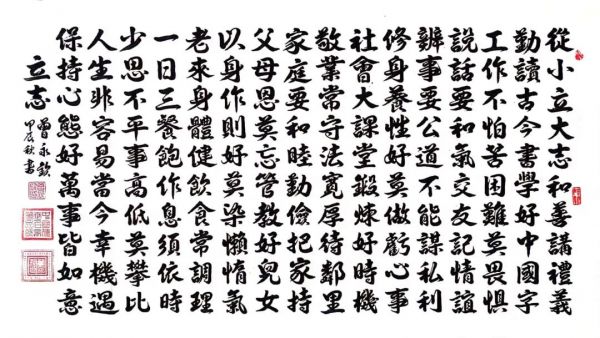 從小立大志和善講禮義
勤讀古今書學好中國字
工作不怕苦困難莫畏懼
說話要和氣交友記情誼
辦事要公道不能謀私利
修身養性好莫做虧心事
社會大課堂鍛煉好時機
敬業常守法寬厚待鄰里
家庭要和睦勤儉把家持
父母恩莫忘管教好兒女
以身作則好莫染懶惰氣
老來身體健飲食常調理
一日三餐飽作息須依時
少思不平事高低莫攀比
人生非容易當今幸機遇
保持心態好萬事皆如意
立志
曾永欽
甲辰秋書